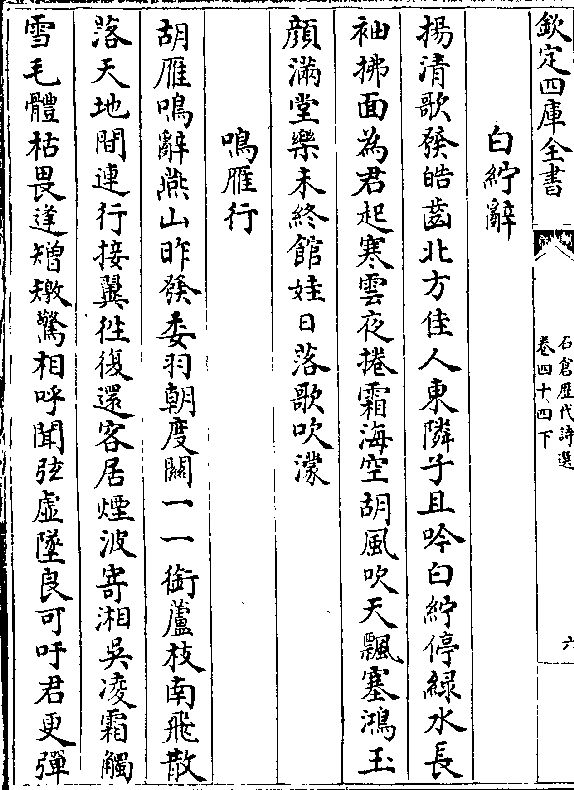 欽定四庫全書
石倉歷代詩選
卷四十四下
六
白紵辭
揚清歌發皓齒北方佳人東隣子且吟白紵停緑水長
袖拂面為君起寒雲夜捲霜海空胡風吹天飄塞鴻玉
顔滿堂樂未終館娃日落歌吹濛
鳴雁行
胡雁鳴辭燕山昨發委羽朝度關一一銜蘆枝南飛散
落天地間連行接翼徃復還客居煙波寄湘吳凌霜觸
雪毛體枯畏逢矰繳驚相呼聞弦虛墜良可吁君更彈